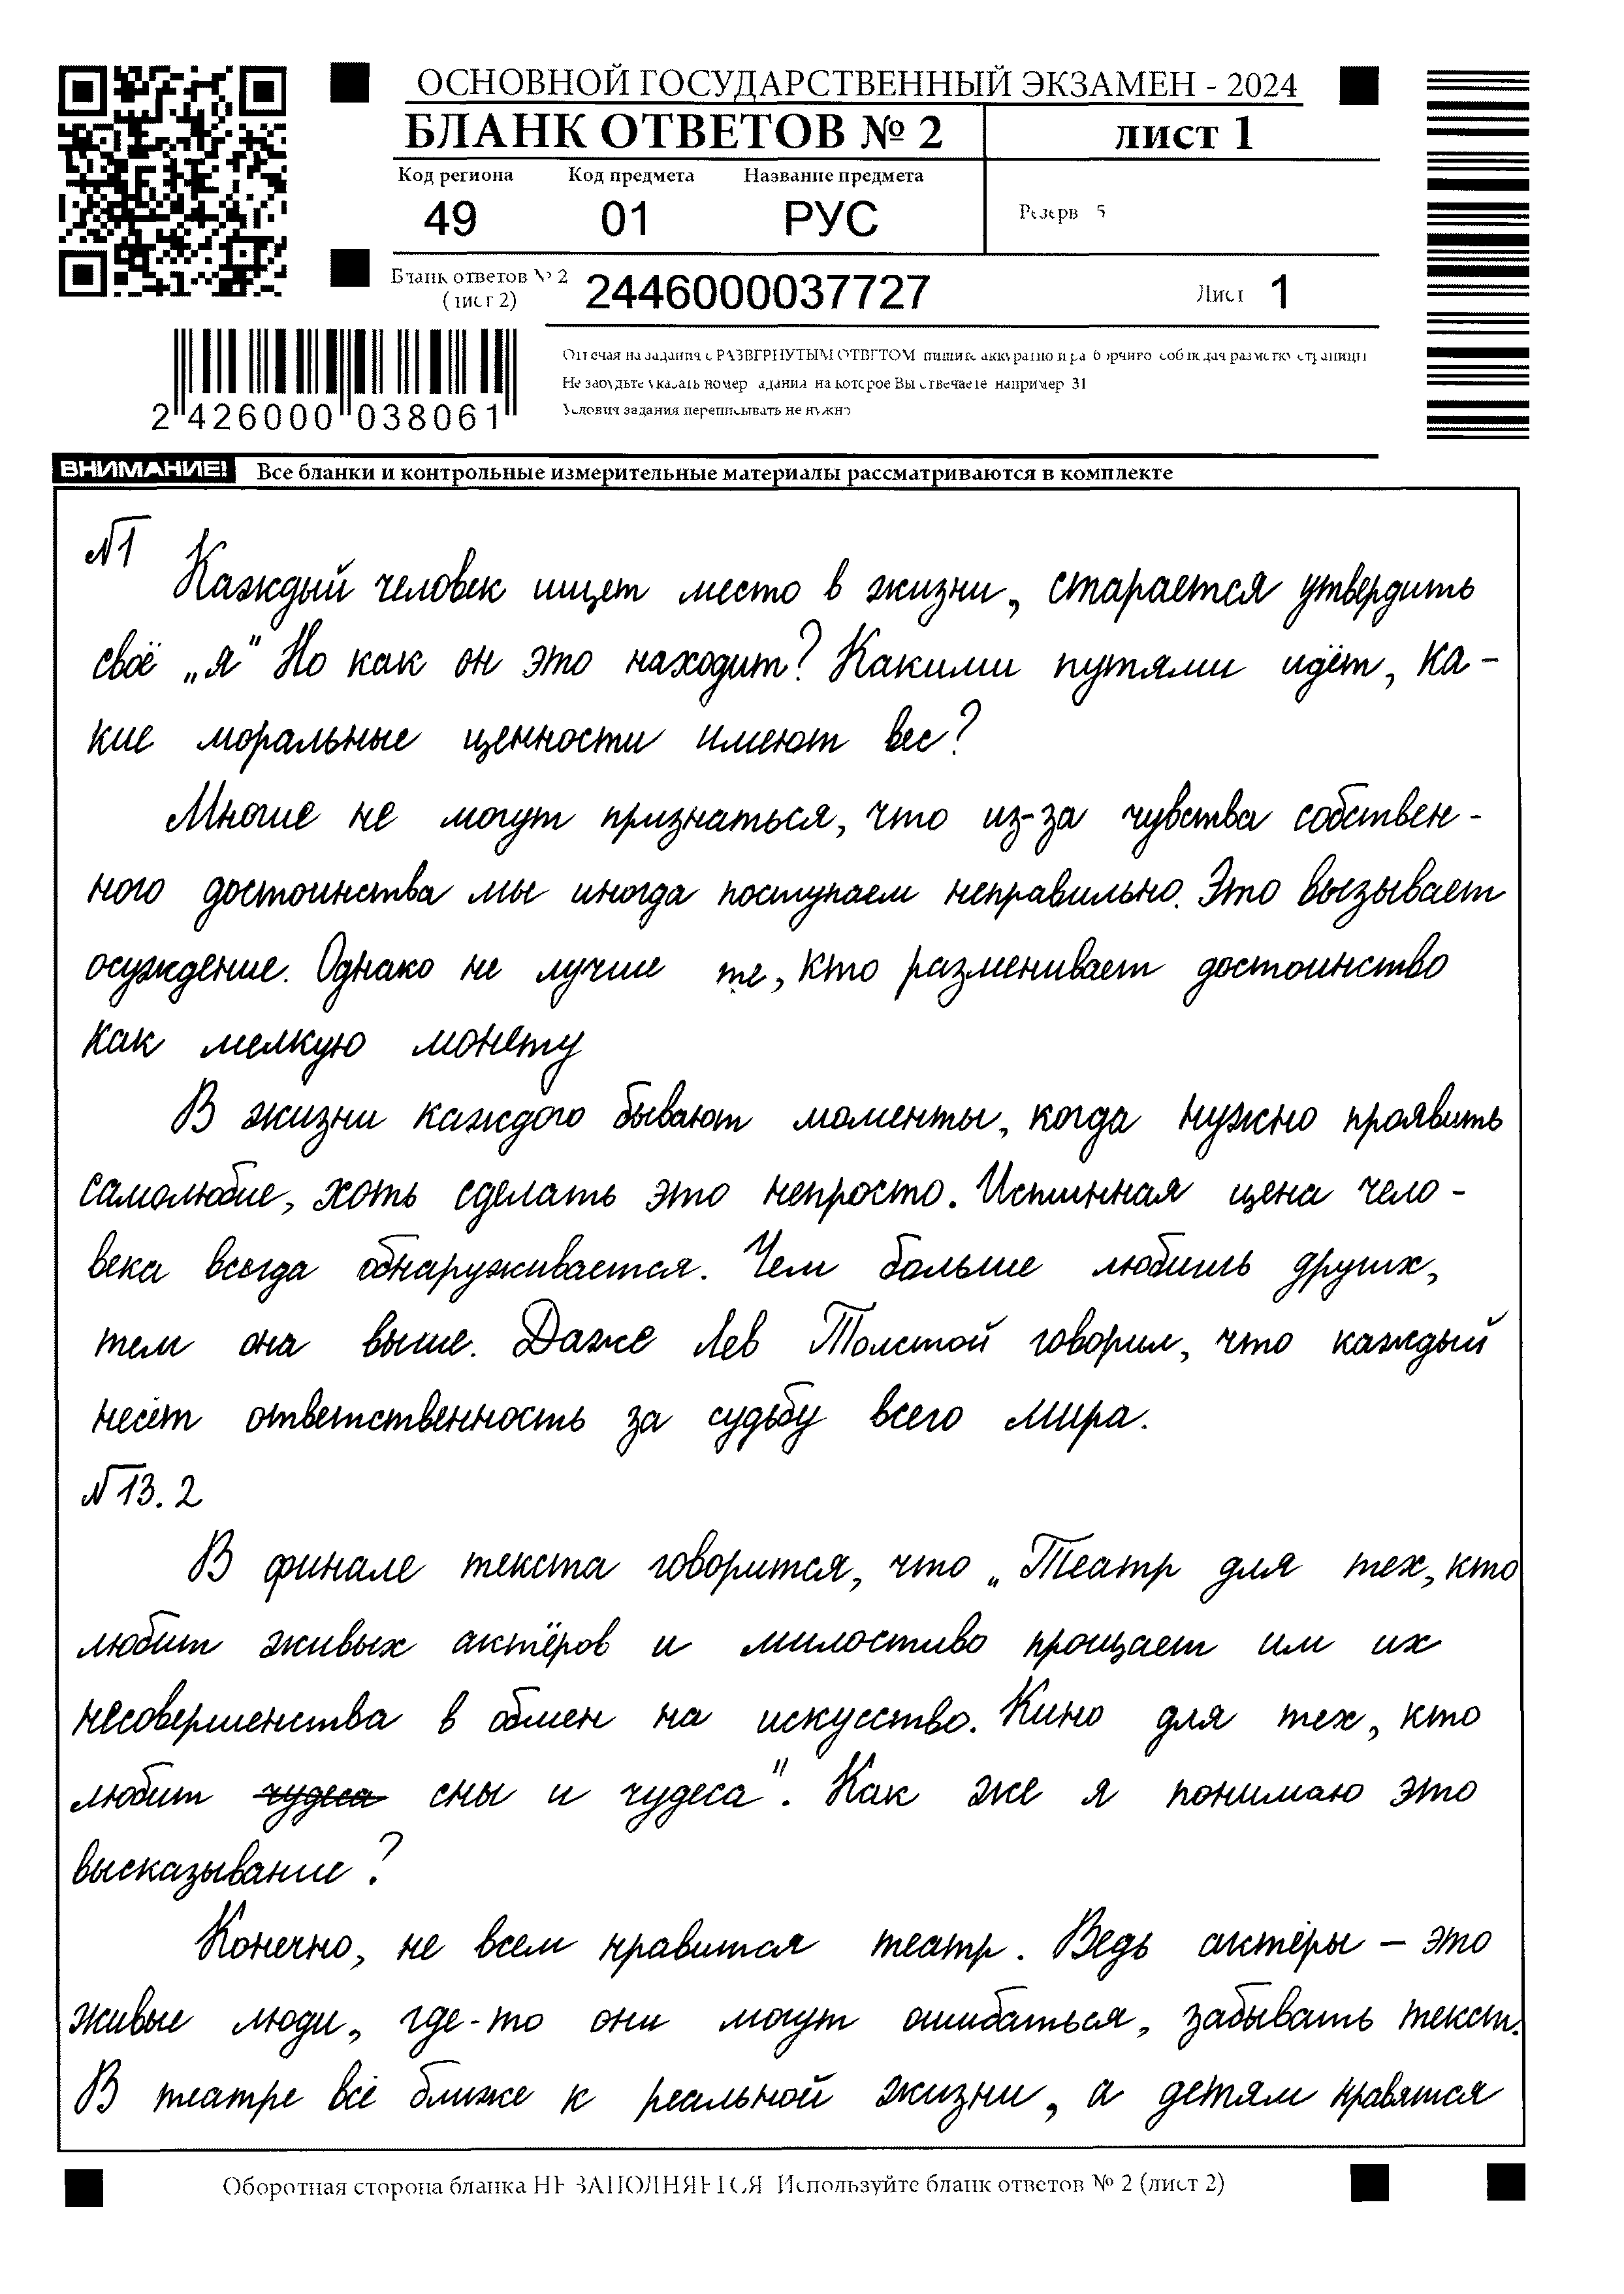 ОСНОВНОЙ ГОСУДАРСТВЕННЫЙ ЭКЗАМЕН - 2024
БЛАНК ОТВЕТОВ № 2
ЛИСТ 1
Код региона Код предмета Название предмета
49 01 РУС
Резерв 5
Бланк ответов № 2 (лист 2)
2446000037727
Лист 1
Отвечая на задания с РАЗВЕРНУТЫМ ОТВЕТОМ, пишите аккуратно и разборчиво, соблюдая разметку страницы
Не забудьте указать номер задания, на которое Вы отвечаете, например 31
Условия задания переписывать не нужно
2 426000 038061
ВНИМАНИЕ! Все бланки и контрольные измерительные материалы рассматриваются в комплекте
№1
Каждый человек ищет место в жизни, старается утвердить
своё „я" Но как он это находит? Какими путями идёт, ка-
кие моральные ценности имеют вес?
Многие не могут признаться, что из-за чувства собствен-
ного достоинства мы иногда поступаем неправильно. Это вызывает
осуждение. Однако не лучше те, кто разменивает достоинство
как мелкую монету
В жизни каждого бывают моменты, когда нужно проявить
самолюбие, хоть сделать это непросто. Истинная цена чело-
века всегда обнаруживается. Чем больше любишь других,
тем она выше. Даже Лев Толстой говорил, что каждый
несёт ответственность за судьбу всего мира.
№13.2
В финале текста говорится, что „Театр для тех, кто
любит живых актёров и милостиво прощает им их
несовершенства в обмен на искусство. Кино для тех, кто
любит чудеса сны и чудеса". Как же я понимаю это
высказывание?
Конечно, не всем нравится театр. Ведь актёры – это
живые люди, где-то они могут ошибаться, забывать текст.
В театре всё ближе к реальной жизни, а детям нравятся
Оборотная сторона бланка НЕ ЗАПОЛНЯЕТСЯ. Используйте бланк ответов № 2 (лист 2)